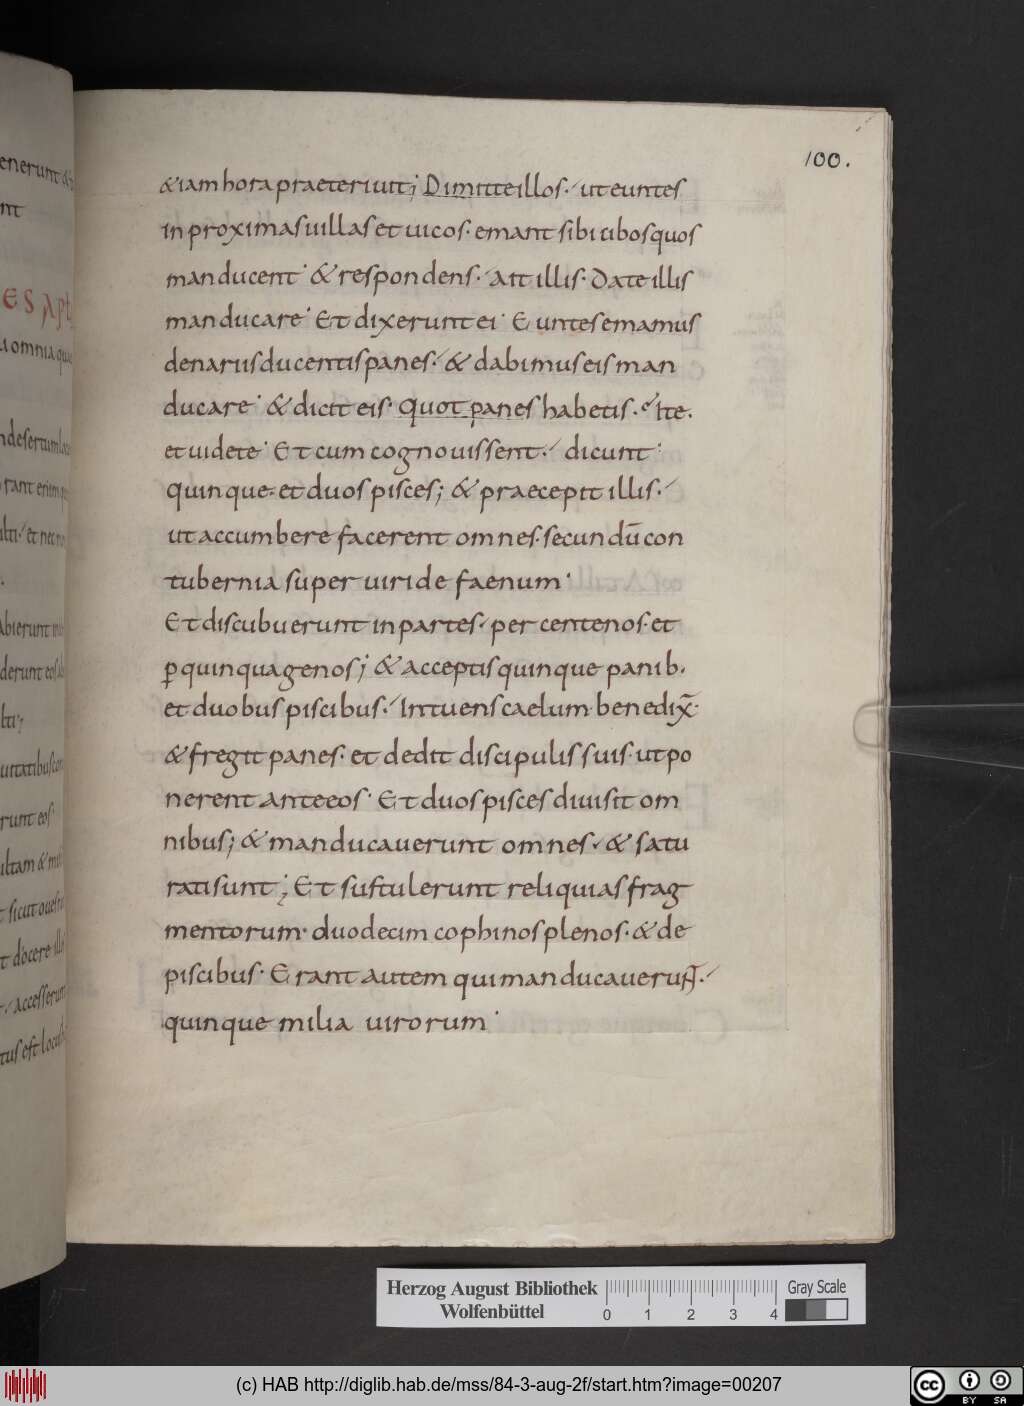 enerunt &
nt
100.
& iam hora praeteriuit; Dimitte illos. ut euntes
in proximas uillas et uicos. emant sibi cibos quos
manducent. & respondens. ait illis. Date illis
manducare. Et dixerunt ei. Euntes emamus
denariis ducentis panes. & dabimus eis man
ducare. & dicit eis. Quot panes habetis. Ite.
et uidete. Et cum cognouissent. dicunt.
quinque. et duos pisces; & praecepit illis.
ut accumbere facerent omnes. secundū con
tubernia super uiride faenum.
Et discubuerunt in partes. per centenos. et
ꝑ quinquagenos; & acceptis quinque panib.
et duobus piscibus. Intuens caelum. benedix̄.
& fregit panes. et dedit discipulis suis. ut po
nerent ante eos. Et duos pisces diuisit om
nibus; & manducauerunt omnes. & satu
rati sunt; Et sustulerunt reliquias frag
mentorum. duodecim cophinos plenos. & de
piscibus. Erant autem qui manducauerunt.
quinque milia uirorum.
ES APT
omnia qu
desertum
rant enim
lti. et nec
abierunt
derunt eos
lti;
uitatibus
runt eos
ltam & mi
t sicut oues
t docere ill
accesserunt
tus est locu
Herzog August Bibliothek
Wolfenbüttel
0 1 2 3 4
Gray Scale
(c) HAB http://diglib.hab.de/mss/84-3-aug-2f/start.htm?image=00207
cc BY SA